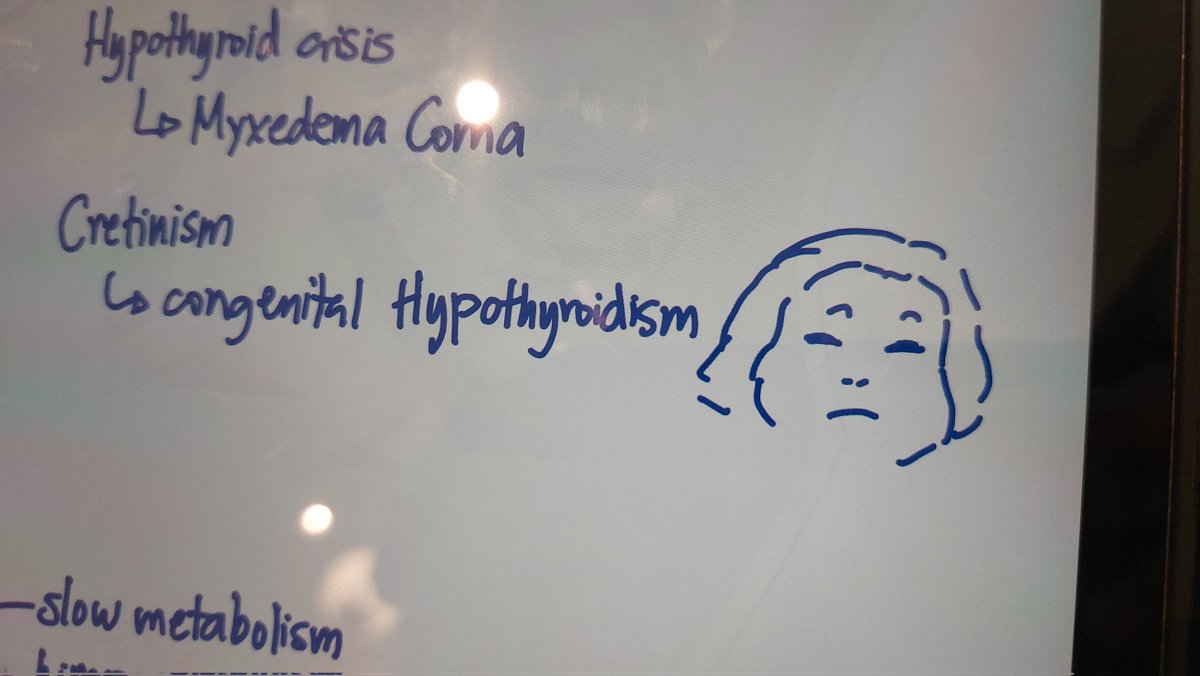 Hypothyroid crisis
↳ Myxedema Coma
Cretinism
↳ congenital Hypothyroidism
- slow metabolism